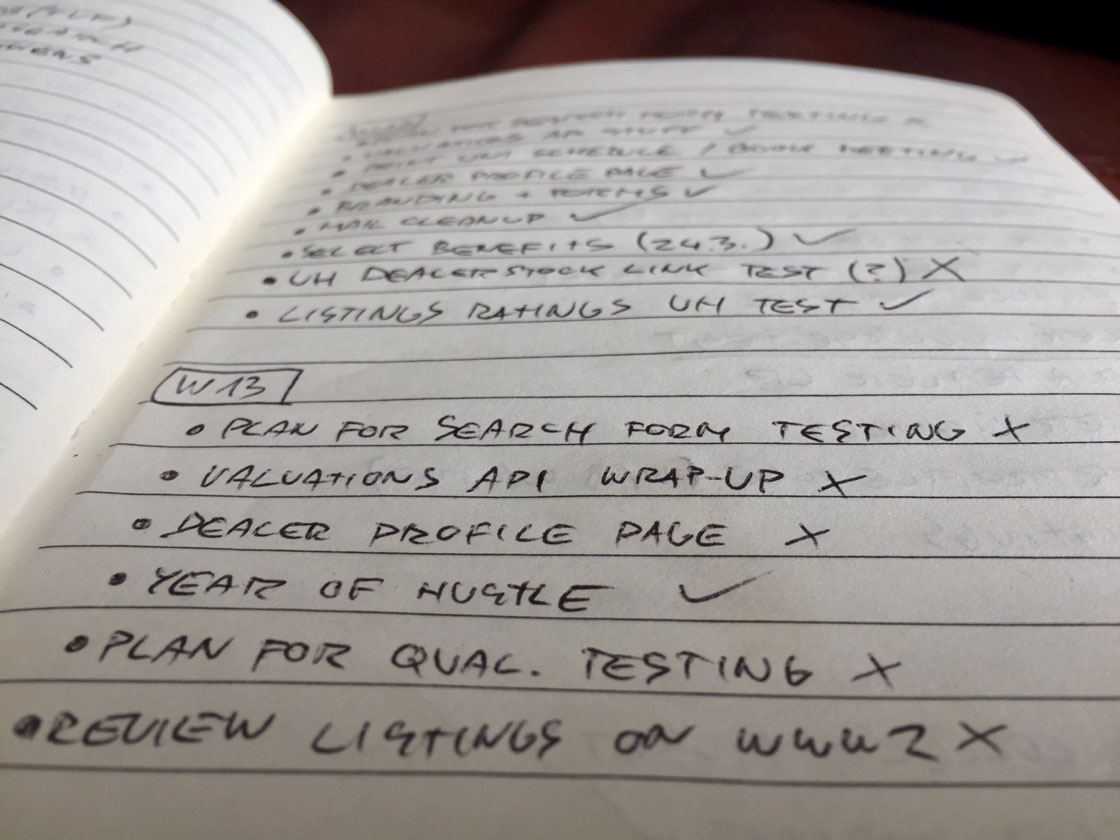 SEARCH
SEARCH FORM TESTING X
• VALUATIONS API STUFF ✓
• PRINT UNI SCHEDULE / BOOK MEETING ✓
• DEALER PROFILE PAGE ✓
• BRANDING + TOTEMS ✓
• MAIL CLEANUP ✓
• SELECT BENEFITS (24.3.) ✓
• UH DEALER STOCK LINK TEST (?) X
• LISTINGS RATINGS UH TEST ✓
W13
• PLAN FOR SEARCH FORM TESTING X
• VALUATIONS API WRAP-UP X
• DEALER PROFILE PAGE X
• YEAR OF HUSTLE ✓
• PLAN FOR QUAL. TESTING X
• REVIEW LISTINGS ON WWW2 X